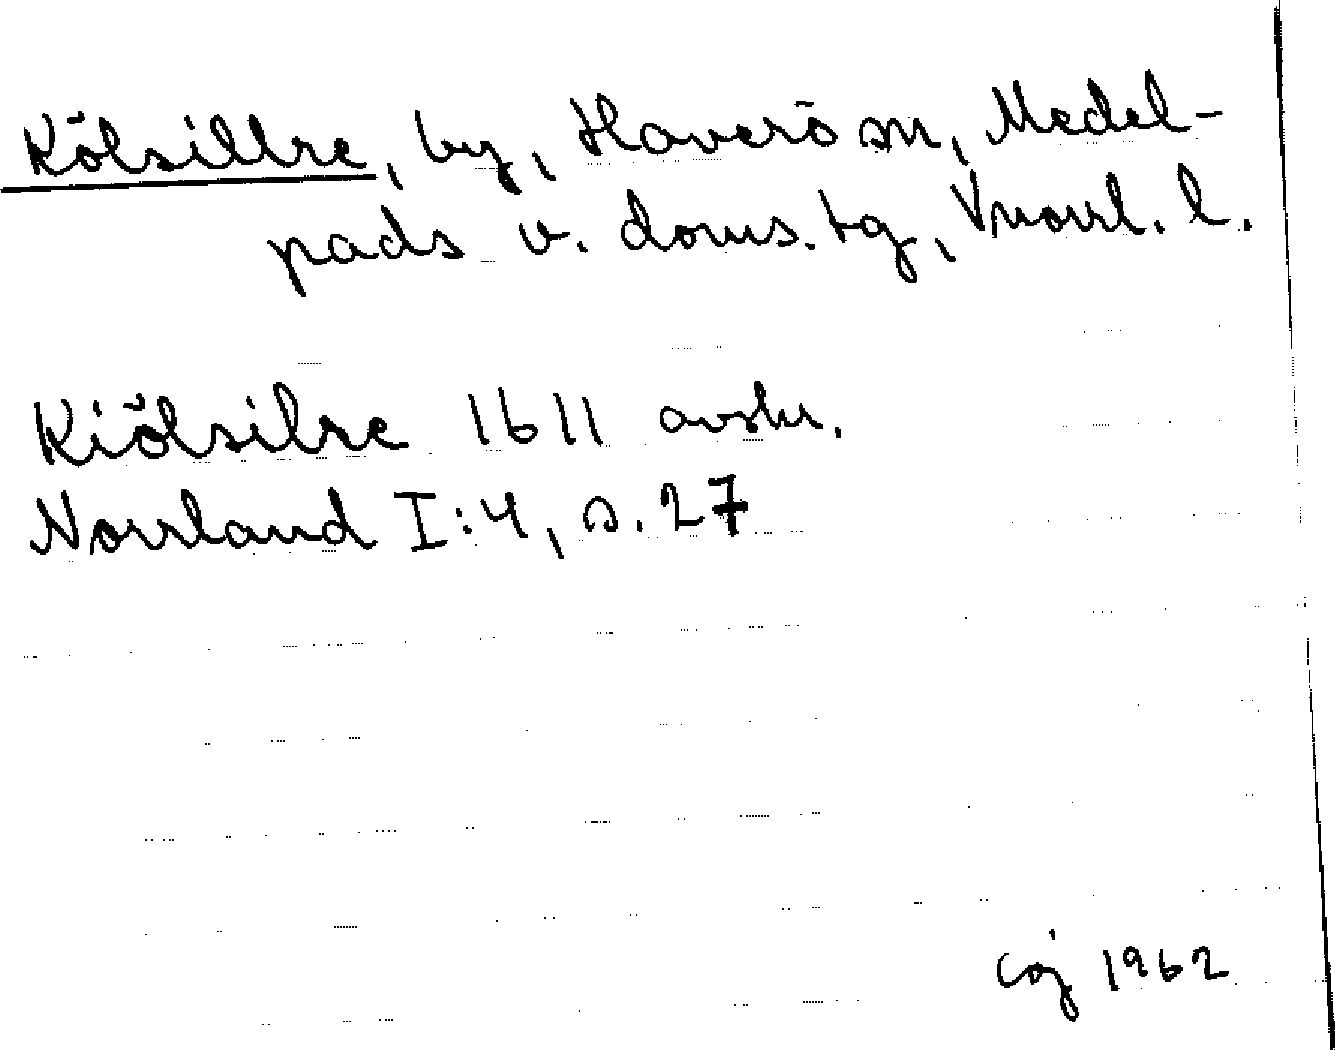 Kölsillre, by, Haverö sn, Medel-
pads v. doms. tg, Vnorrl. l.
Kiölsilre 1611 avskr.
Norrland I:4, s. 27
Coj 1962